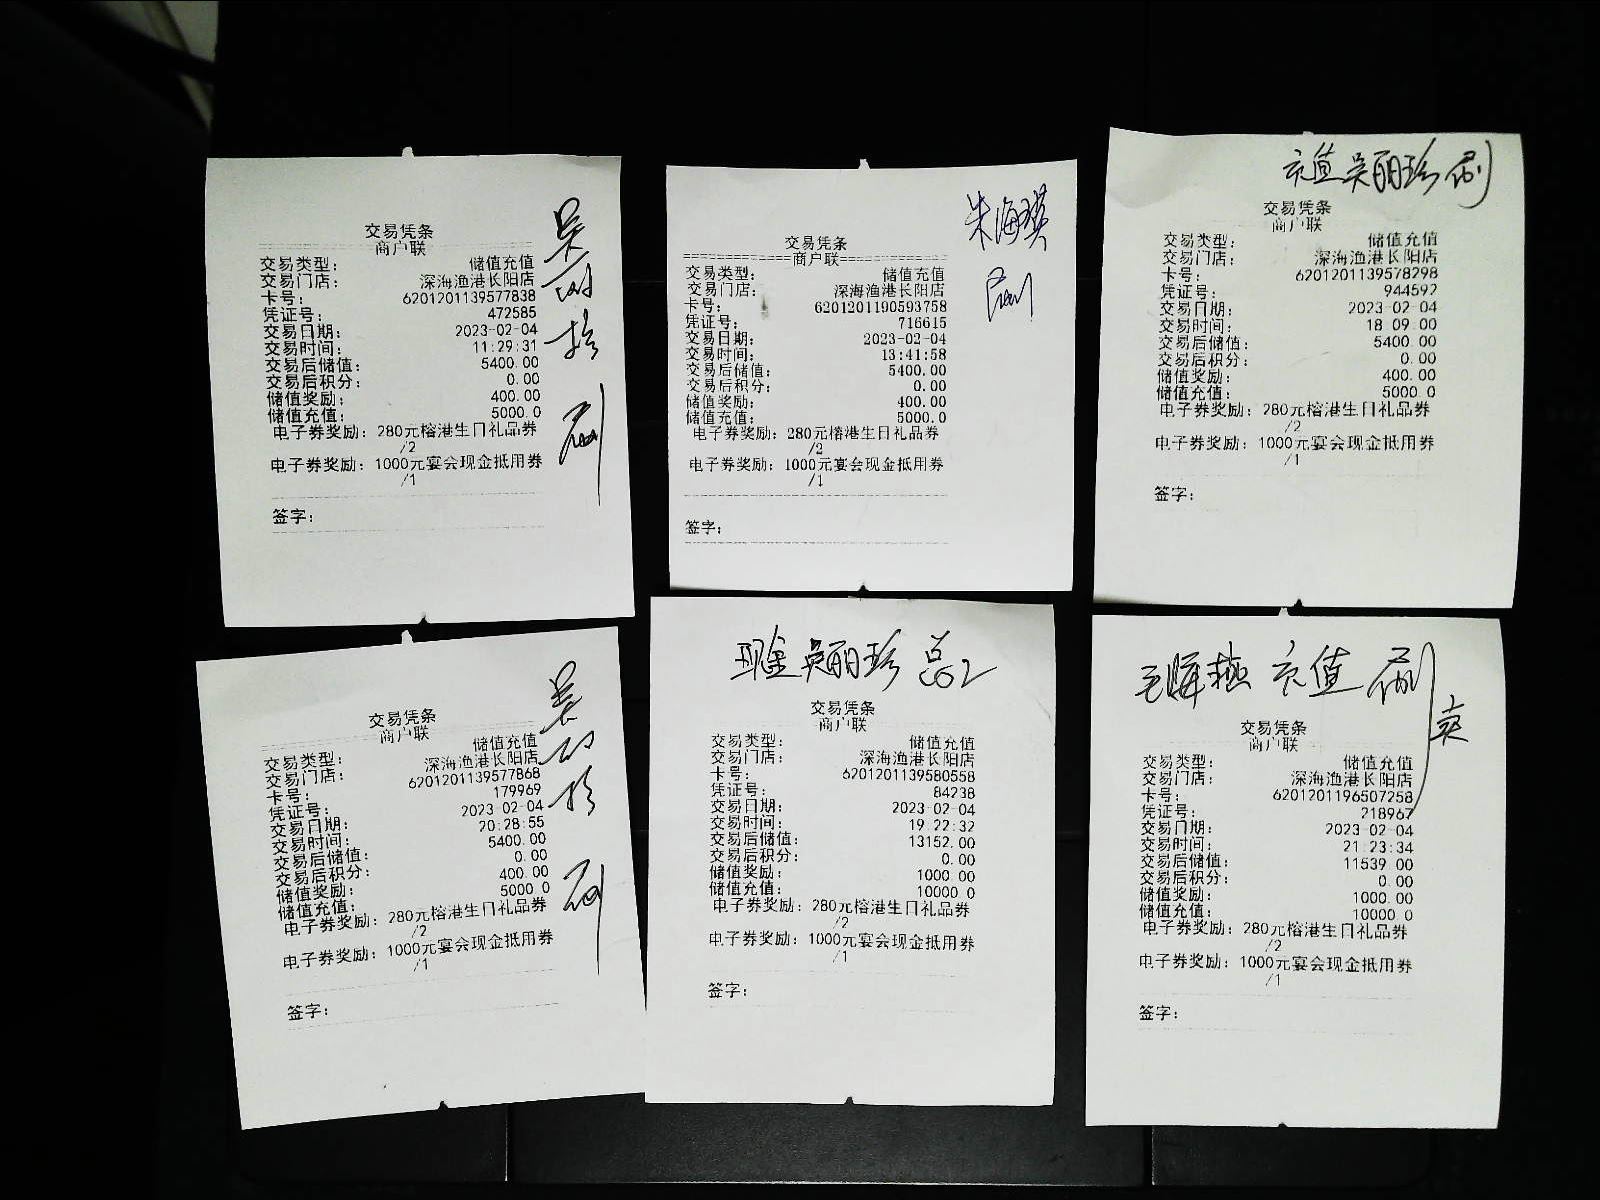 吴丽珍 刷
交易凭条
商户联
交易类型： 储值充值
交易门店： 深海渔港长阳店
卡号： 6201201139577838
凭证号： 472585
交易日期： 2023-02-04
交易时间： 11:29:31
交易后储值： 5400.00
交易后积分： 0.00
储值奖励： 400.00
储值充值： 5000.0
电子券奖励：280元榕港生日礼品券
/2
电子券奖励：1000元宴会现金抵用券
/1
签字：
朱海璞
刷
交易凭条
商户联
交易类型： 储值充值
交易门店： 深海渔港长阳店
卡号： 6201201190593758
凭证号： 716615
交易日期： 2023-02-04
交易时间： 13:41:58
交易后储值： 5400.00
交易后积分： 0.00
储值奖励： 400.00
储值充值： 5000.0
电子券奖励：280元榕港生日礼品券
/2
电子券奖励：1000元宴会现金抵用券
/1
签字：
充值吴丽珍 刷
交易凭条
商户联
交易类型： 储值充值
交易门店： 深海渔港长阳店
卡号： 6201201139578298
凭证号： 944592
交易日期： 2023-02-04
交易时间： 18 09.00
交易后储值： 5400.00
交易后积分： 0.00
储值奖励： 400.00
储值充值： 5000 0
电子券奖励：280元榕港生日礼品券
/2
电子券奖励：1000元宴会现金抵用券
/1
签字：
吴丽珍 刷
交易凭条
商户联
交易类型： 储值充值
交易门店： 深海渔港长阳店
卡号： 6201201139577868
凭证号： 179969
交易日期： 2023-02-04
交易时间： 20:28:55
交易后储值： 5400.00
交易后积分： 0.00
储值奖励： 400.00
储值充值： 5000 0
电子券奖励：280元榕港生日礼品券
/2
电子券奖励：1000元宴会现金抵用券
/1
签字：
现金 吴丽珍 总02
交易凭条
商户联
交易类型： 储值充值
交易门店： 深海渔港长阳店
卡号： 6201201139580558
凭证号： 84238
交易日期： 2023-02-04
交易时间： 19:22:32
交易后储值： 13152.00
交易后积分： 0.00
储值奖励： 1000.00
储值充值： 10000 0
电子券奖励：280元榕港生日礼品券
/2
电子券奖励：1000元宴会现金抵用券
/1
签字：
毛晖燕 充值 刷
交易凭条
商户联
交易类型： 储值充值
交易门店： 深海渔港长阳店
卡号： 6201201196507258
凭证号： 218967
交易日期： 2023-02-04
交易时间： 21:23:34
交易后储值： 11539 00
交易后积分： 0.00
储值奖励： 1000.00
储值充值： 10000 0
电子券奖励：280元榕港生日礼品券
/2
电子券奖励：1000元宴会现金抵用券
/1
签字：